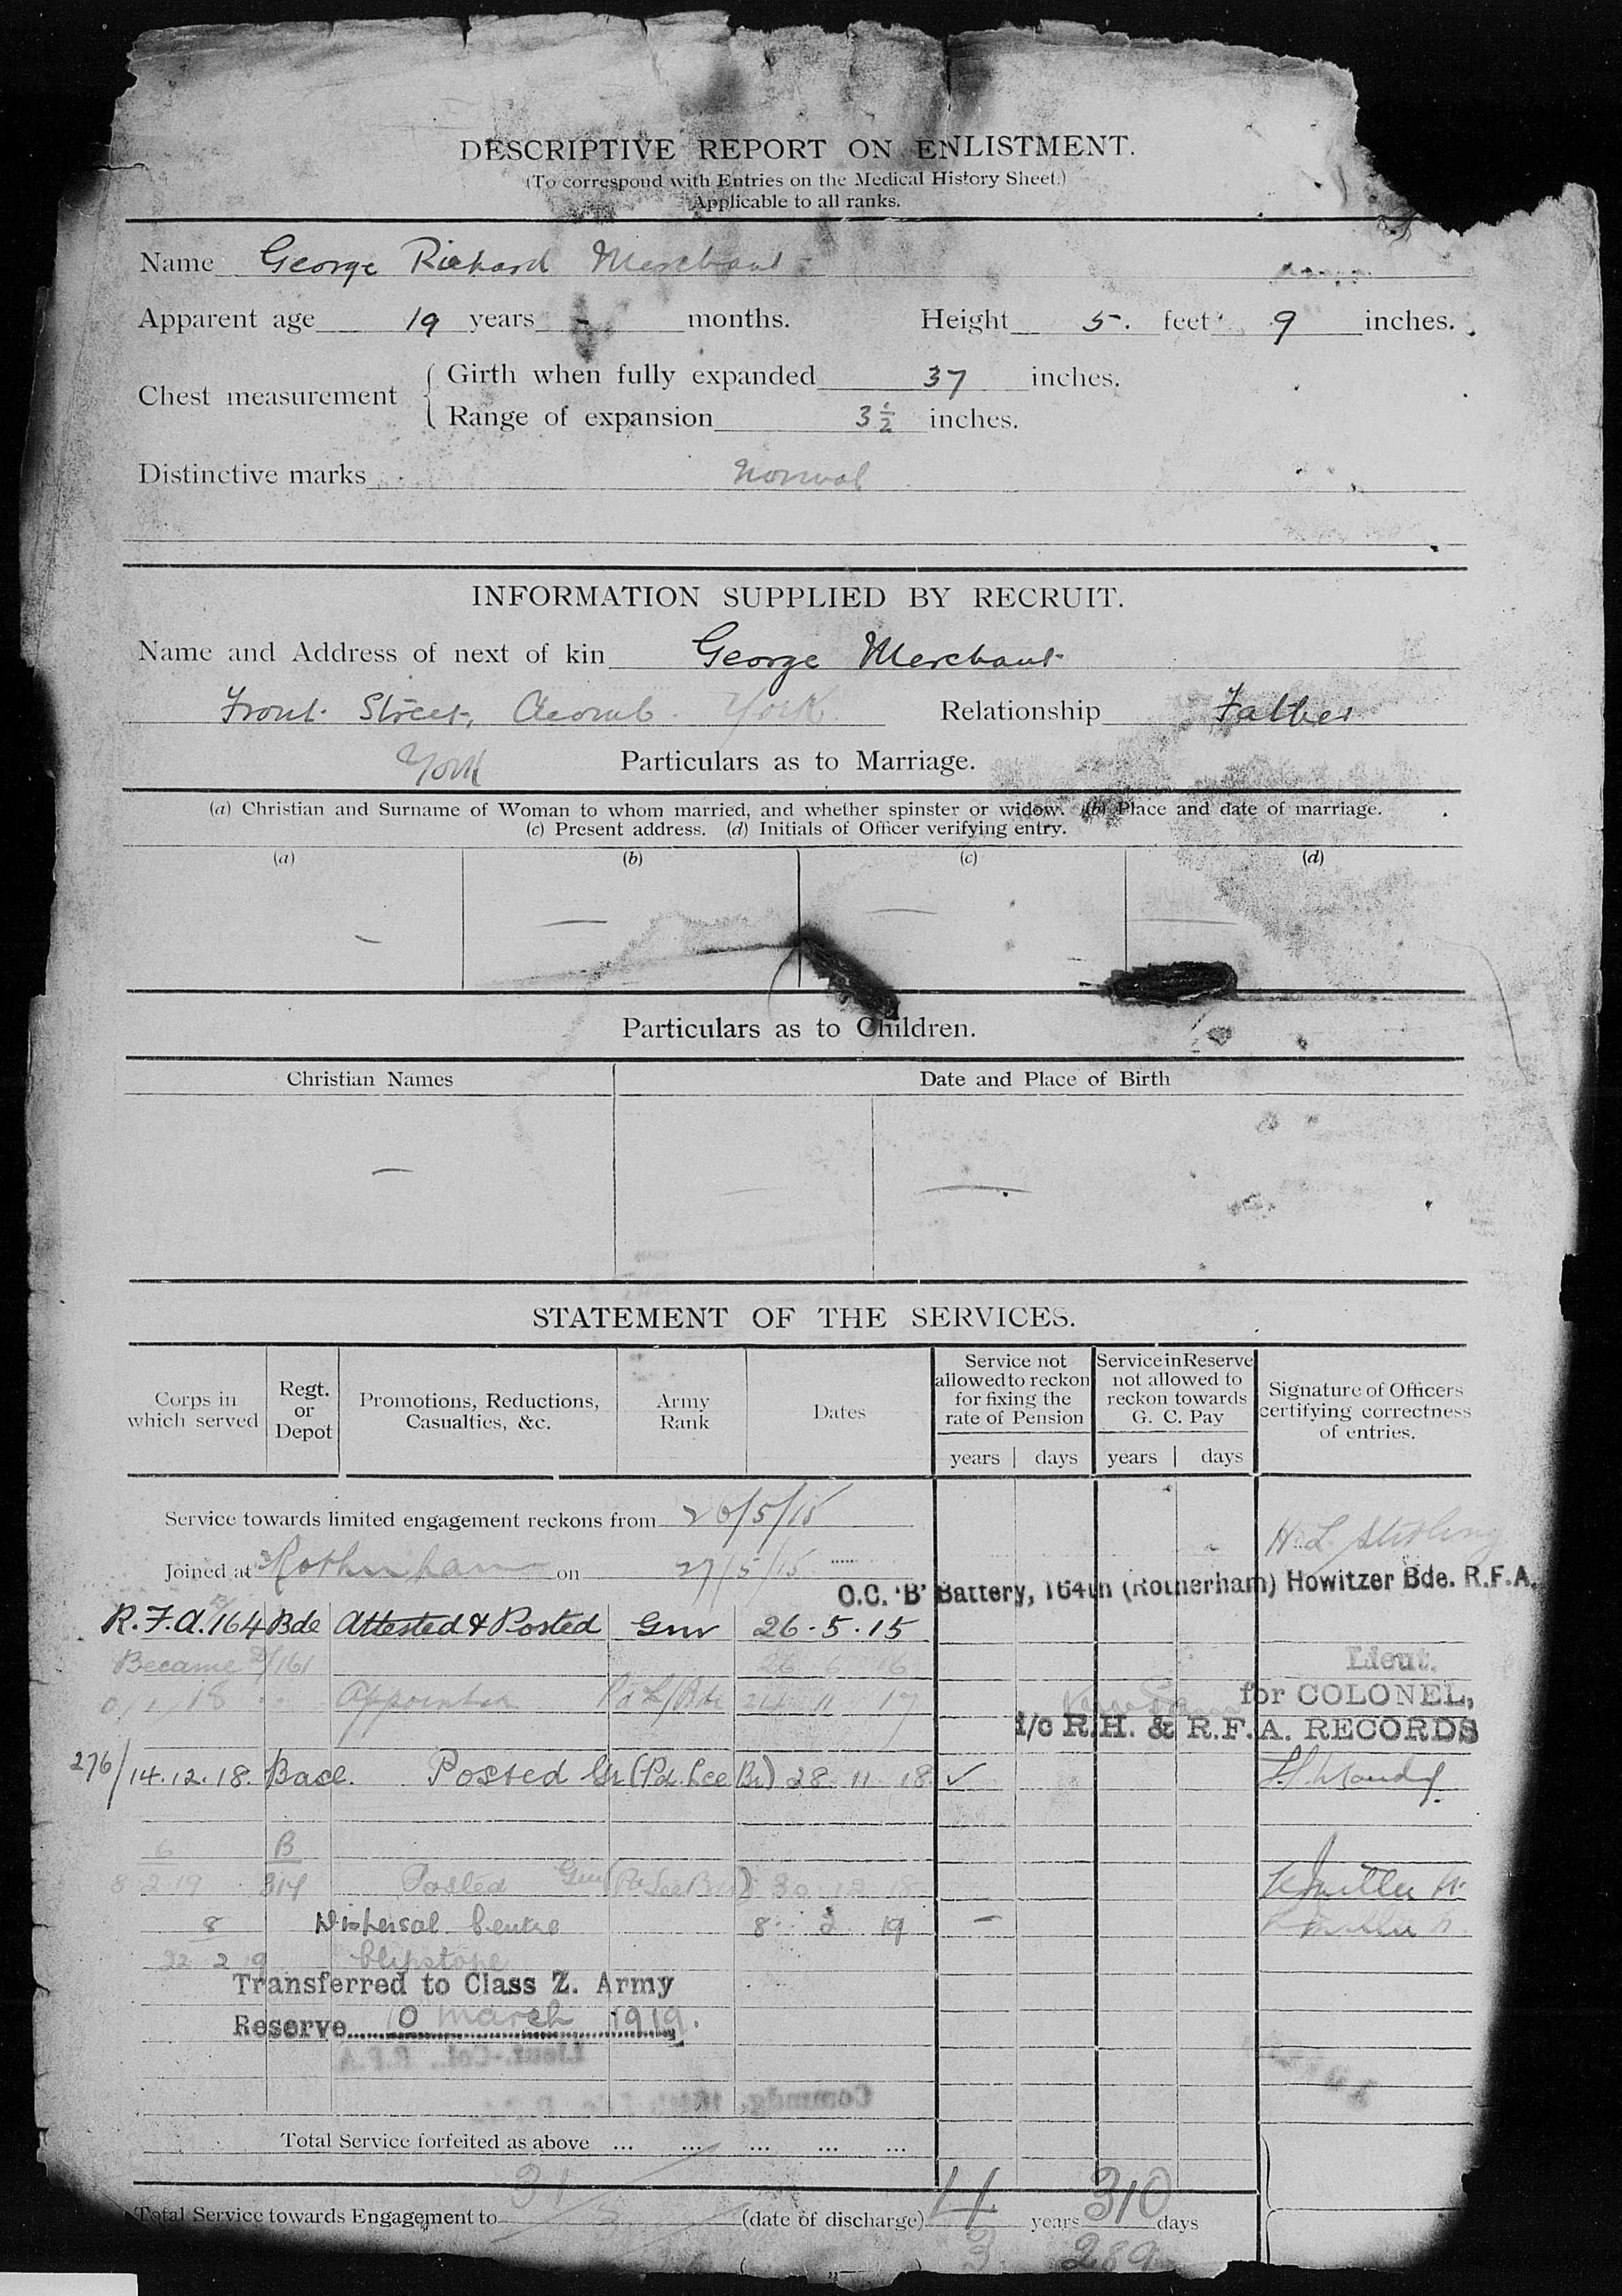 DESCRIPTIVE REPORT ON ENLISTMENT.
(To correspond with Entries on the Medical History Sheet.)
Applicable to all ranks.
Name George Richard Merchant
Apparent age 19 years - months. Height 5. feet 9 inches.
Chest measurement { Girth when fully expanded 37 inches.
Range of expansion 3½ inches.
Distinctive marks Normal
INFORMATION SUPPLIED BY RECRUIT.
Name and Address of next of kin George Merchant
Front Street, Acomb York Relationship Father
York Particulars as to Marriage.
(a) Christian and Surname of Woman to whom married, and whether spinster or widow. (b) Place and date of marriage.
(c) Present address. (d) Initials of Officer verifying entry.
(a) (b) (c) (d)
— — — —
Particulars as to Children.
Christian Names Date and Place of Birth
— —
STATEMENT OF THE SERVICES.
Corps in which served Regt. or Depot Promotions, Reductions, Casualties, &c. Army Rank Dates Service not allowed to reckon for fixing the rate of Pension Service in Reserve not allowed to reckon towards G. C. Pay Signature of Officers certifying correctness of entries.
years days years days
Service towards limited engagement reckons from 26/5/15
H. L. Stirling
Joined at Rotherham on 27/5/15
O.C. 'B' Battery, 164th (Rotherham) Howitzer Bde. R.F.A.
R.F.A. 164 Bde Attested & Posted Gnr 26.5.15
Became /161 26 6 16
Lieut.
18 Appointed 24 11 17 for COLONEL,
i/c R.H. & R.F.A. RECORDS
276/14.12.18. Base. Posted Gr (Pd. Lce Br) 28 11 18 ✓
6 B
8 2 19 314 Posted Gnr 30 12 18
8 Dispersal Centre 8 2 19 —
22 2 9 Clipstone
Transferred to Class Z. Army
Reserve 10 March 1919.
Lieut.-Col., R.F.A
Commdg.
Total Service forfeited as above ... ... ... ... ...
31
Total Service towards Engagement to (date of discharge) 4 years 310 days
3 289